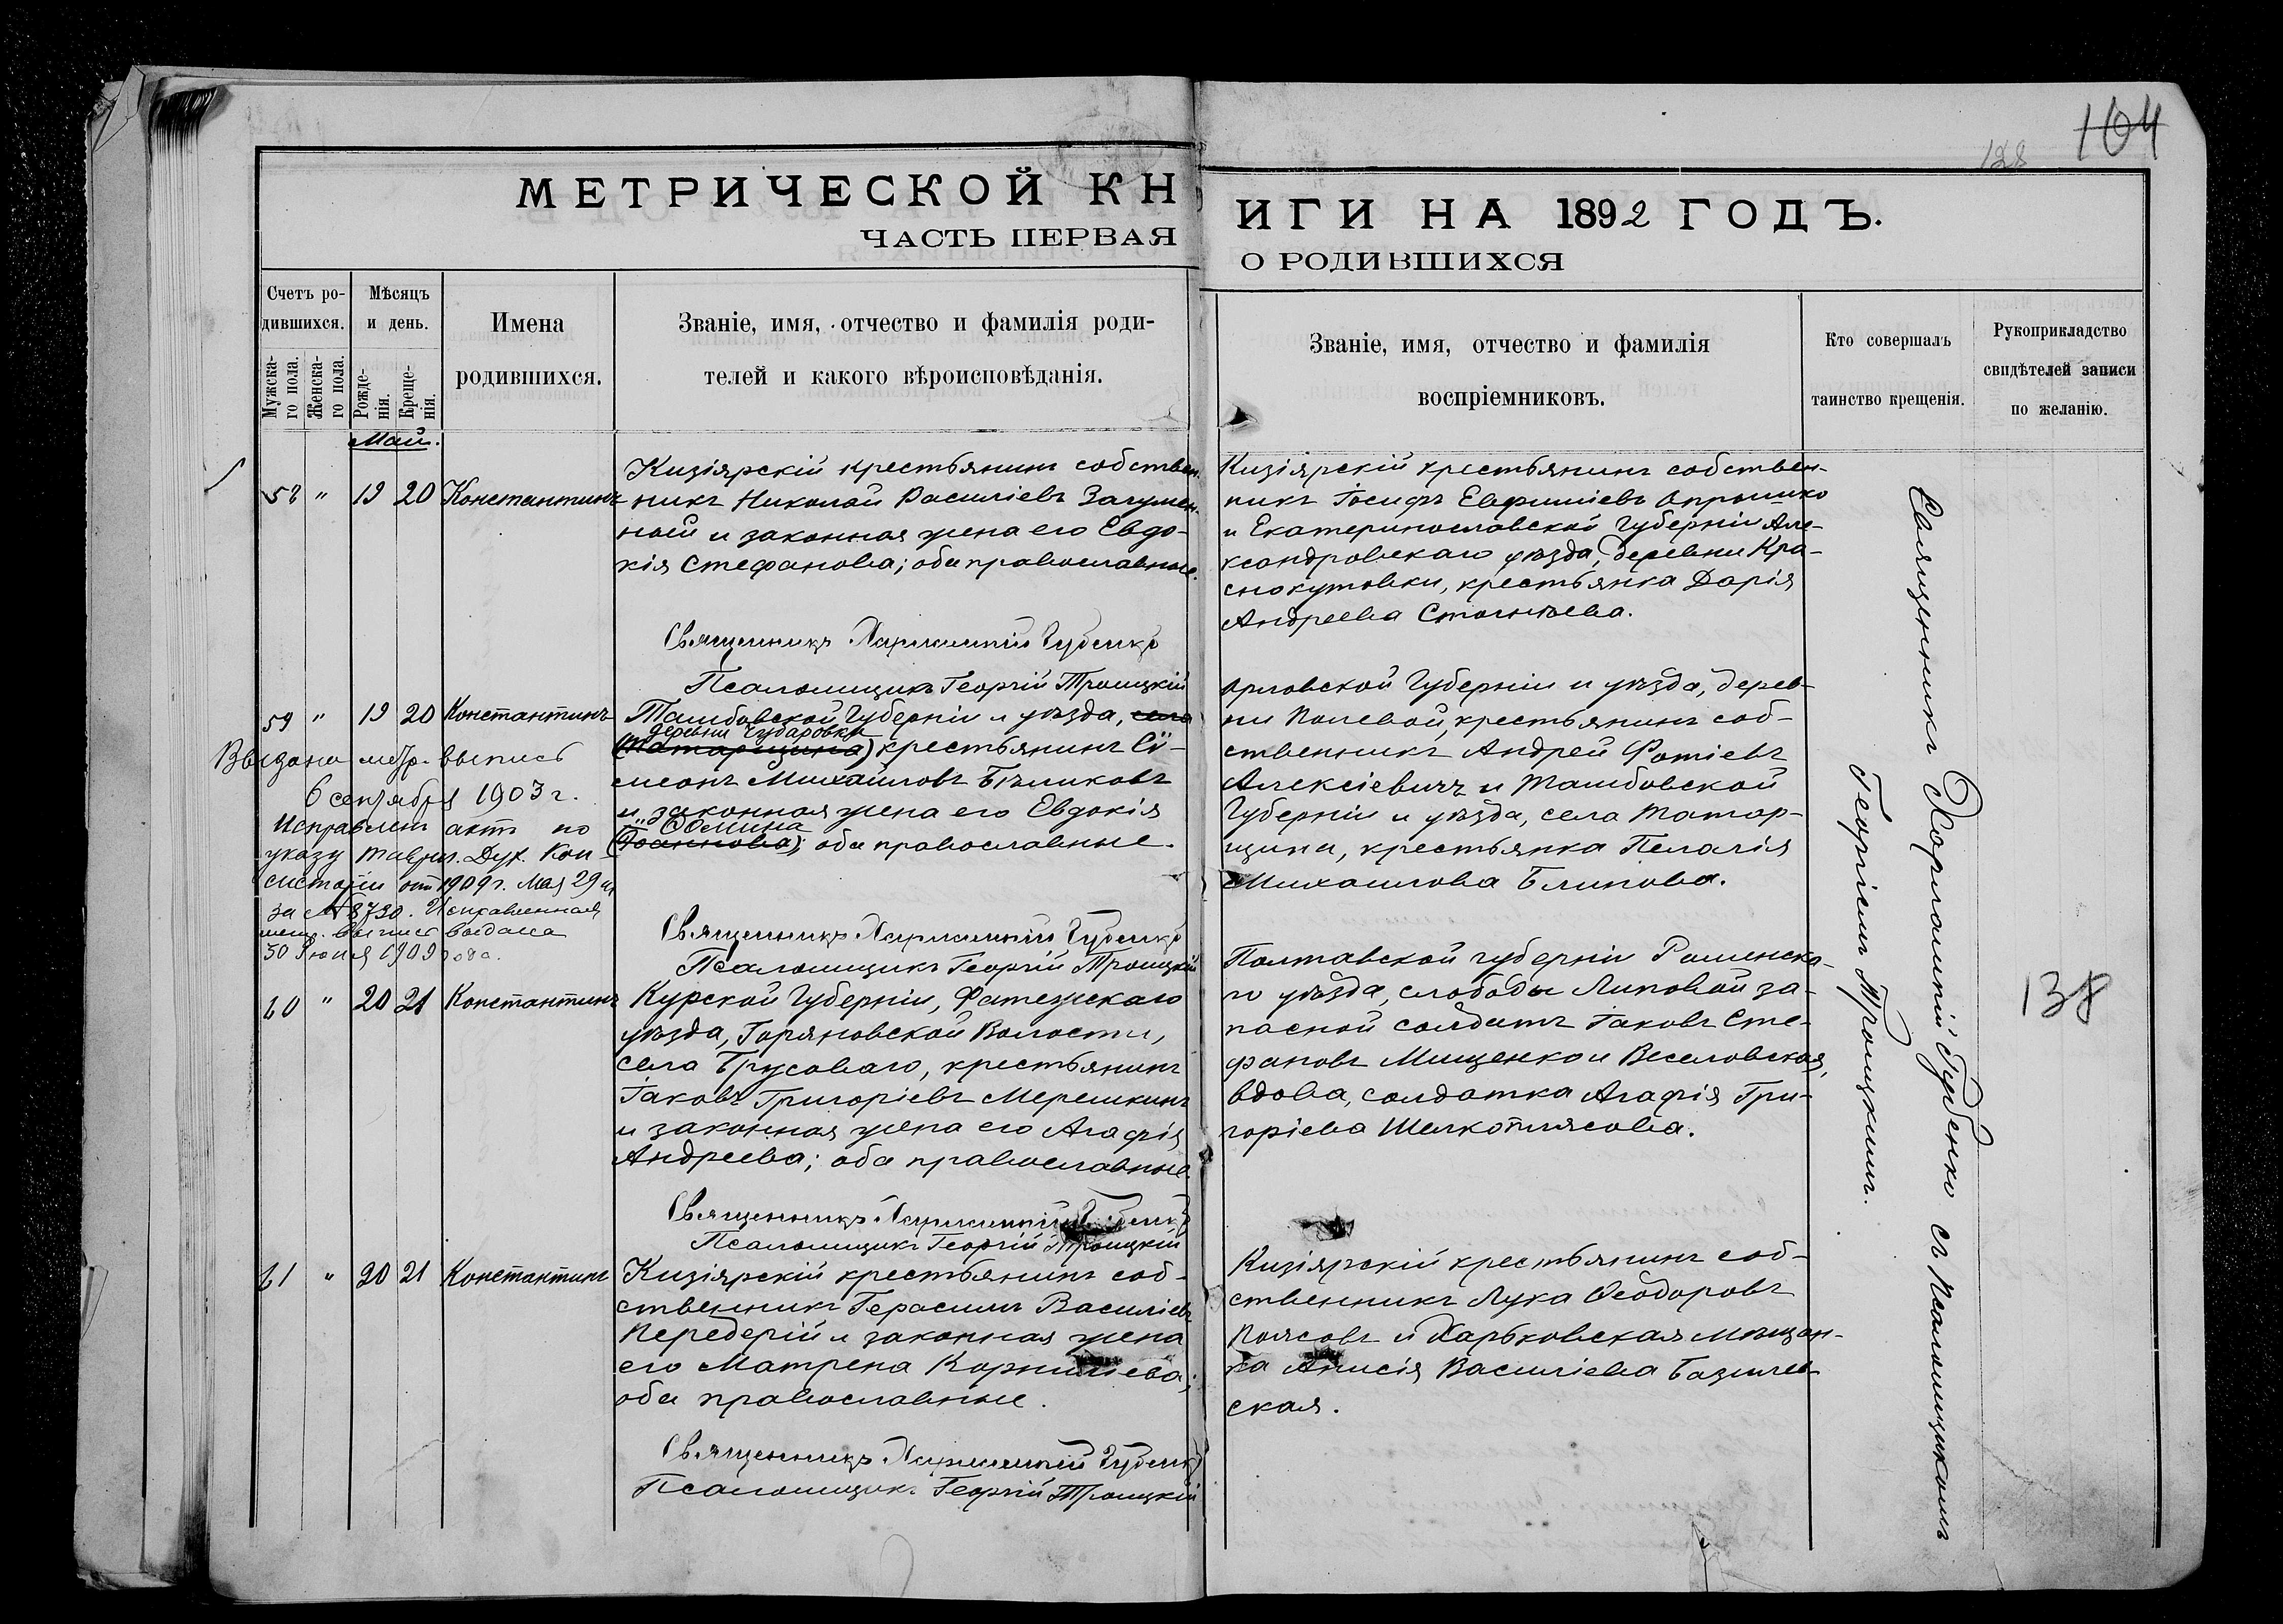 104
128
МЕТРИЧЕСКОЙ КНИГИ НА 1892 ГОДЪ.
ЧАСТЬ ПЕРВАЯ О РОДИВШИХСЯ
Счетъ ро-
дившихся.
Мужска-
го пола.
Женска-
го пола.
Мѣсяцъ
и день.
Рожде-
нія.
Креще-
нія.
Имена
родившихся.
Званіе, имя, отчество и фамилія роди-
телей и какого вѣроисповѣданія.
Званіе, имя, отчество и фамилія
воспріемниковъ.
Кто совершалъ
таинство крещенія.
Рукоприкладство
свидѣтелей записи
по желанію.
Май.
58 " 19 20 Константинъ
Кизіярскій крестьянинъ собствен-
никъ Николай Василіевъ Загумен-
ный и законная жена его Евдо-
кія Стефанова; оба православные.
Священникъ Харлампій Губенко
Псаломщикъ Георгій Троицкій
Кизіярскій крестьянинъ собствен-
никъ Іосифъ Евфиміевъ
и Екатеринославской Губерніи Але-
ксандровскаго уѣзда, деревни Кра-
снокутовки, крестьянка Дарія
Андреева
59 " 19 20 Константинъ
Выдана метр. выпись
6 сентября 1903 г.
Исправленъ актъ по
указу Таврич. Дух. Кон-
систоріи отъ 1909 г. Мая 29 дня
за № 8730. Исправленная
метр. выпись выдана
30 Іюня 1909 года.
Тамбовской Губерніи и уѣзда, села
деревни Чубаровки
(Татарщина) крестьянинъ Сѵ-
меонъ Михайловъ Бѣликовъ
и законная жена его Евдокія
"Ѳомина
(Іоаннова); оба православные.
Священникъ Харлампій Губенко
Псаломщикъ Георгій Троицкій
Орловской Губерніи и уѣзда, дерев-
ни Полевой, крестьянинъ соб-
ственникъ Андрей Фотіевъ
Алексіевичъ и Тамбовской
Губерніи и уѣзда, села Татар-
щины, крестьянка Пелагія
Михаилова Блинова.
60 " 20 21 Константинъ
Курской Губерніи, Фатежскаго
уѣзда, Горяновской Волости,
села Брусоваго, крестьянинъ
Іаковъ Григоріевъ Мерешкинъ
и законная жена его Агафія
Андреева; оба православные.
Священникъ Харлампій Губенко
Псаломщикъ Георгій Троицкій
Полтавской губерніи Роменска-
го уѣзда, слободы Липовой за-
пасной солдатъ Іаковъ Сте-
фановъ Мищенко и Веселовская,
вдова, солдатка Агафія Гри-
горіева Шелкоплясова.
61 " 20 21 Константинъ
Кизіярскій крестьянинъ соб-
ственникъ Герасимъ Василіевъ
Передерій и законная жена
его Матрена Корниліева;
оба православные.
Священникъ Харлампій Губенко
Псаломщикъ Георгій Троицкій
Кизіярскій крестьянинъ соб-
ственникъ Лука Ѳеодоровъ
Поясовъ и Харьковская мѣщан-
ка Анисія Василіева Базилев-
ская.
Священникъ Харлампій Губенко съ Псаломщикомъ
Георгіемъ Троицкимъ.
138